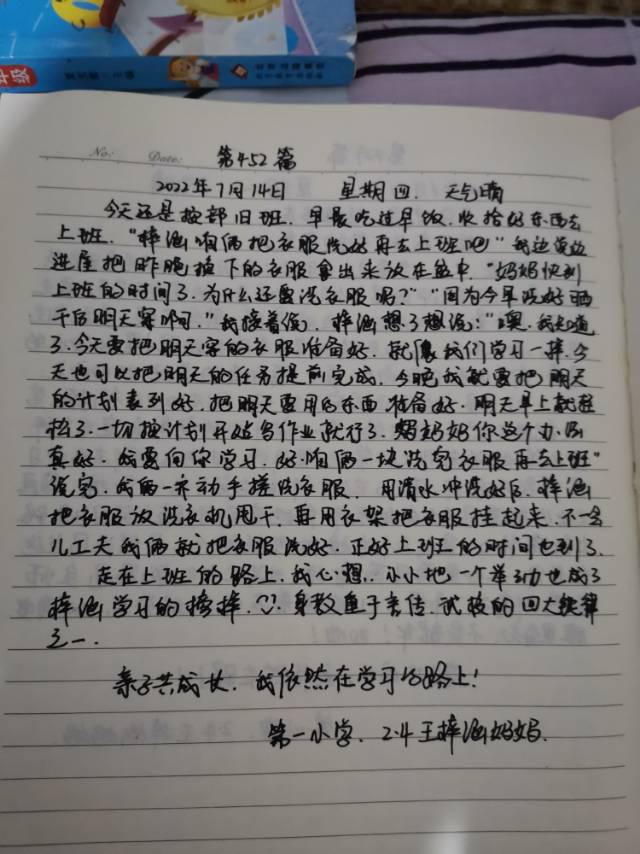 No:
Date:
第452篇
2022年7月14日 星期四. 天气晴
今天还是按部旧班. 早晨吃过早饭. 收拾好东西去
上班. “梓涵咱俩把衣服洗好再去上班吧”我边说边
进屋把昨晚换下的衣服拿出来放在盆中. “妈妈快到
上班的时间了. 为什么还要洗衣服呢?” “因为今早洗好晒
干后明天穿啊.” 我接着说. 梓涵想了想说: “噢. 我知道
了. 今天要把明天穿的衣服准备好. 就像我们学习一样. 今
天也可以把明天的任务提前完成. 今晚我就要把明天
的计划表列好. 把明天要用的东西准备好. 明天早上就轻
松了. 一切按计划开始写作业就行了. 妈妈你这个办法
真好. 我要向你学习. 好. 咱俩一块洗完衣服再去上班”
说完. 我俩一齐动手搓洗衣服. 用清水冲洗好后. 梓涵
把衣服放洗衣机甩干. 再用衣架把衣服挂起来. 不一会
儿工夫我俩就把衣服洗好. 正好上班的时间也到了.
走在上班的路上. 我心想.. 小小把一个举动也成了
梓涵学习的榜样. 身教重于言传. 试校的四大铁律
之一.
亲子共成长. 我依然在学习的路上!
第一小学. 2.4 王梓涵妈妈.